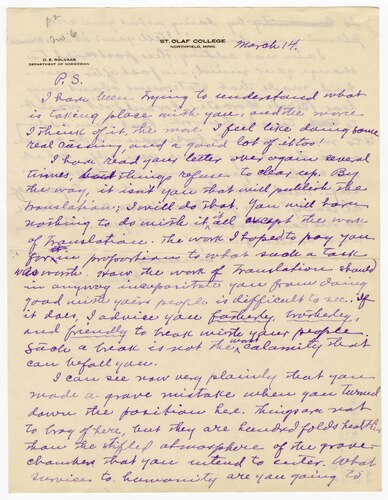 ST. OLAF COLLEGE
NORTHFIELD, MINN.
O. E. ROLVAAG
DEPARTMENT OF NORWEGIAN
March 14.
P. S.
I have been trying to understand what
is taking place with you, and the more
I think of it, the more I feel like doing some
real cussing, and a good lot of it too!
I have read your letter over again several
times, things refuse to clear up. By
the way, it isn't you that will publish the
translation; I will do that. You will have
nothing to do with it at all except the work
of translation. The work I hoped to pay you
for in proportion to what such a task
was worth. How the work of translation should
in anyway incapacitate you from doing
good with your people is difficult to see. If
it does, I advise you
and friendly to break with your people.
Such a break is not the worst calamity that
can befall you.
I can see now very plainly that you
made a grave mistake when you turned
down the position here. Things are not
to brag of here, but they are hundred folds healthier
than the stifled atmosphere of the grave
chamber that you intend to enter. What
services to humanity are you going to